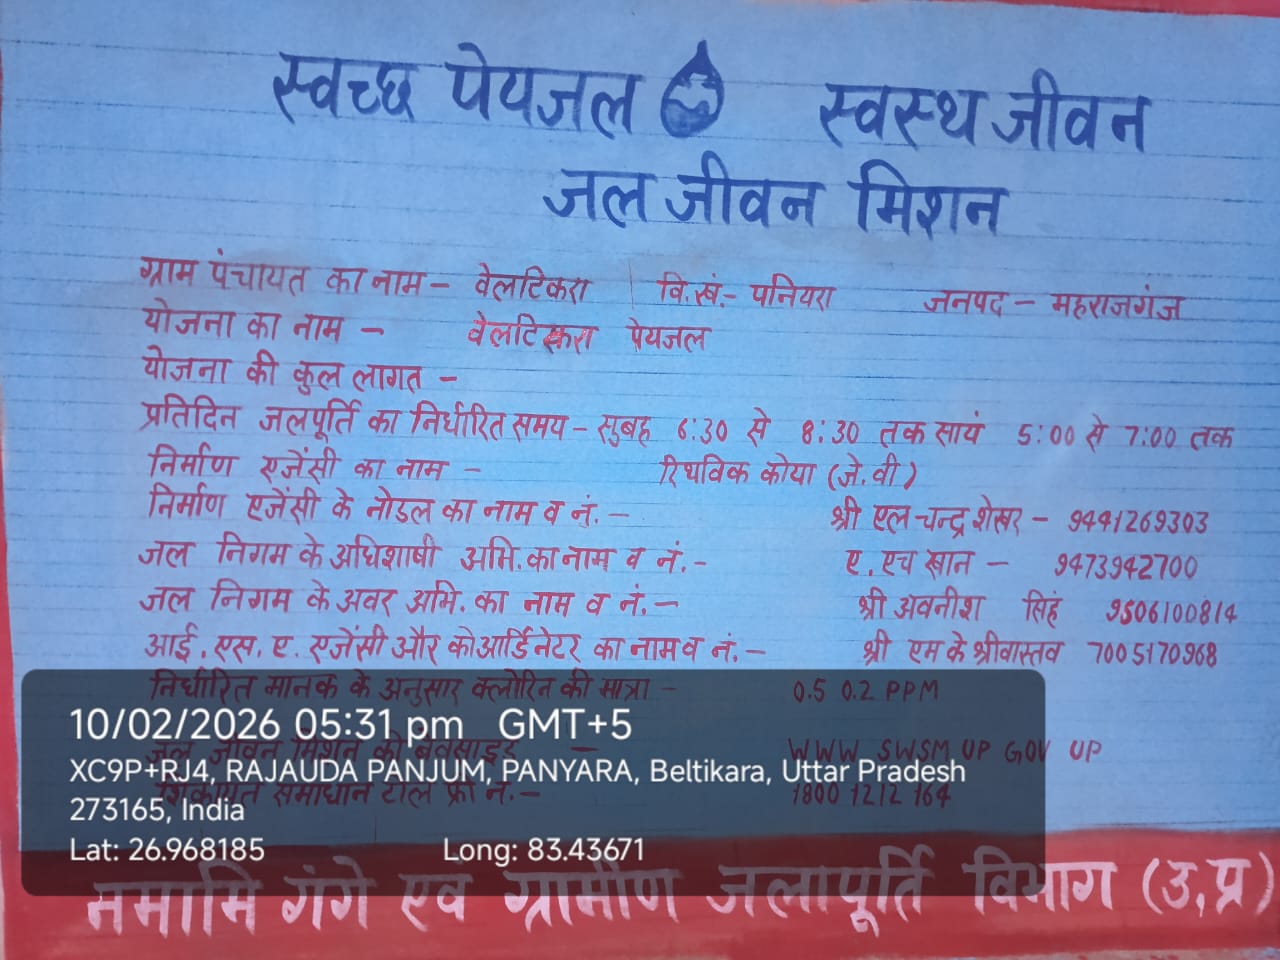 स्वच्छ पेयजल स्वस्थ जीवन
जल जीवन मिशन
ग्राम पंचायत का नाम - वेलटिकरा वि.खं.- पनियरा जनपद - महराजगंज
योजना का नाम - वेलटिकरा पेयजल
योजना की कुल लागत -
प्रतिदिन जलपूर्ति का निर्धारित समय - सुबह 6:30 से 8:30 तक सायं 5:00 से 7:00 तक
निर्माण एजेंसी का नाम - रिथविक कोया (जे.वी)
निर्माण एजेंसी के नोडल का नाम व नं.- श्री एल चन्द्र शेखर - 9441269303
जल निगम के अधिशाषी अभि.का नाम व नं.- ए.एच खान - 9473942700
जल निगम के अवर अभि. का नाम व नं.- श्री अवनीश सिंह 9506100814
आई.एस.ए. एजेंसी और कोआर्डिनेटर का नाम व नं.- श्री एम के श्रीवास्तव 7005170968
निर्धारित मानक के अनुसार क्लोरिन की मात्रा - 0.5 0.2 PPM
जल जीवन मिशन की बेवसाइट - WWW SWSM UP GOV UP
शिकायत समाधान टोल फ्री नं.- 1800 1212 164
10/02/2026 05:31 pm GMT+5
XC9P+RJ4, RAJAUDA PANJUM, PANYARA, Beltikara, Uttar Pradesh
273165, India
Lat: 26.968185 Long: 83.43671
नमामि गंगे एव ग्रामीण जलापूर्ति विभाग (उ.प्र)